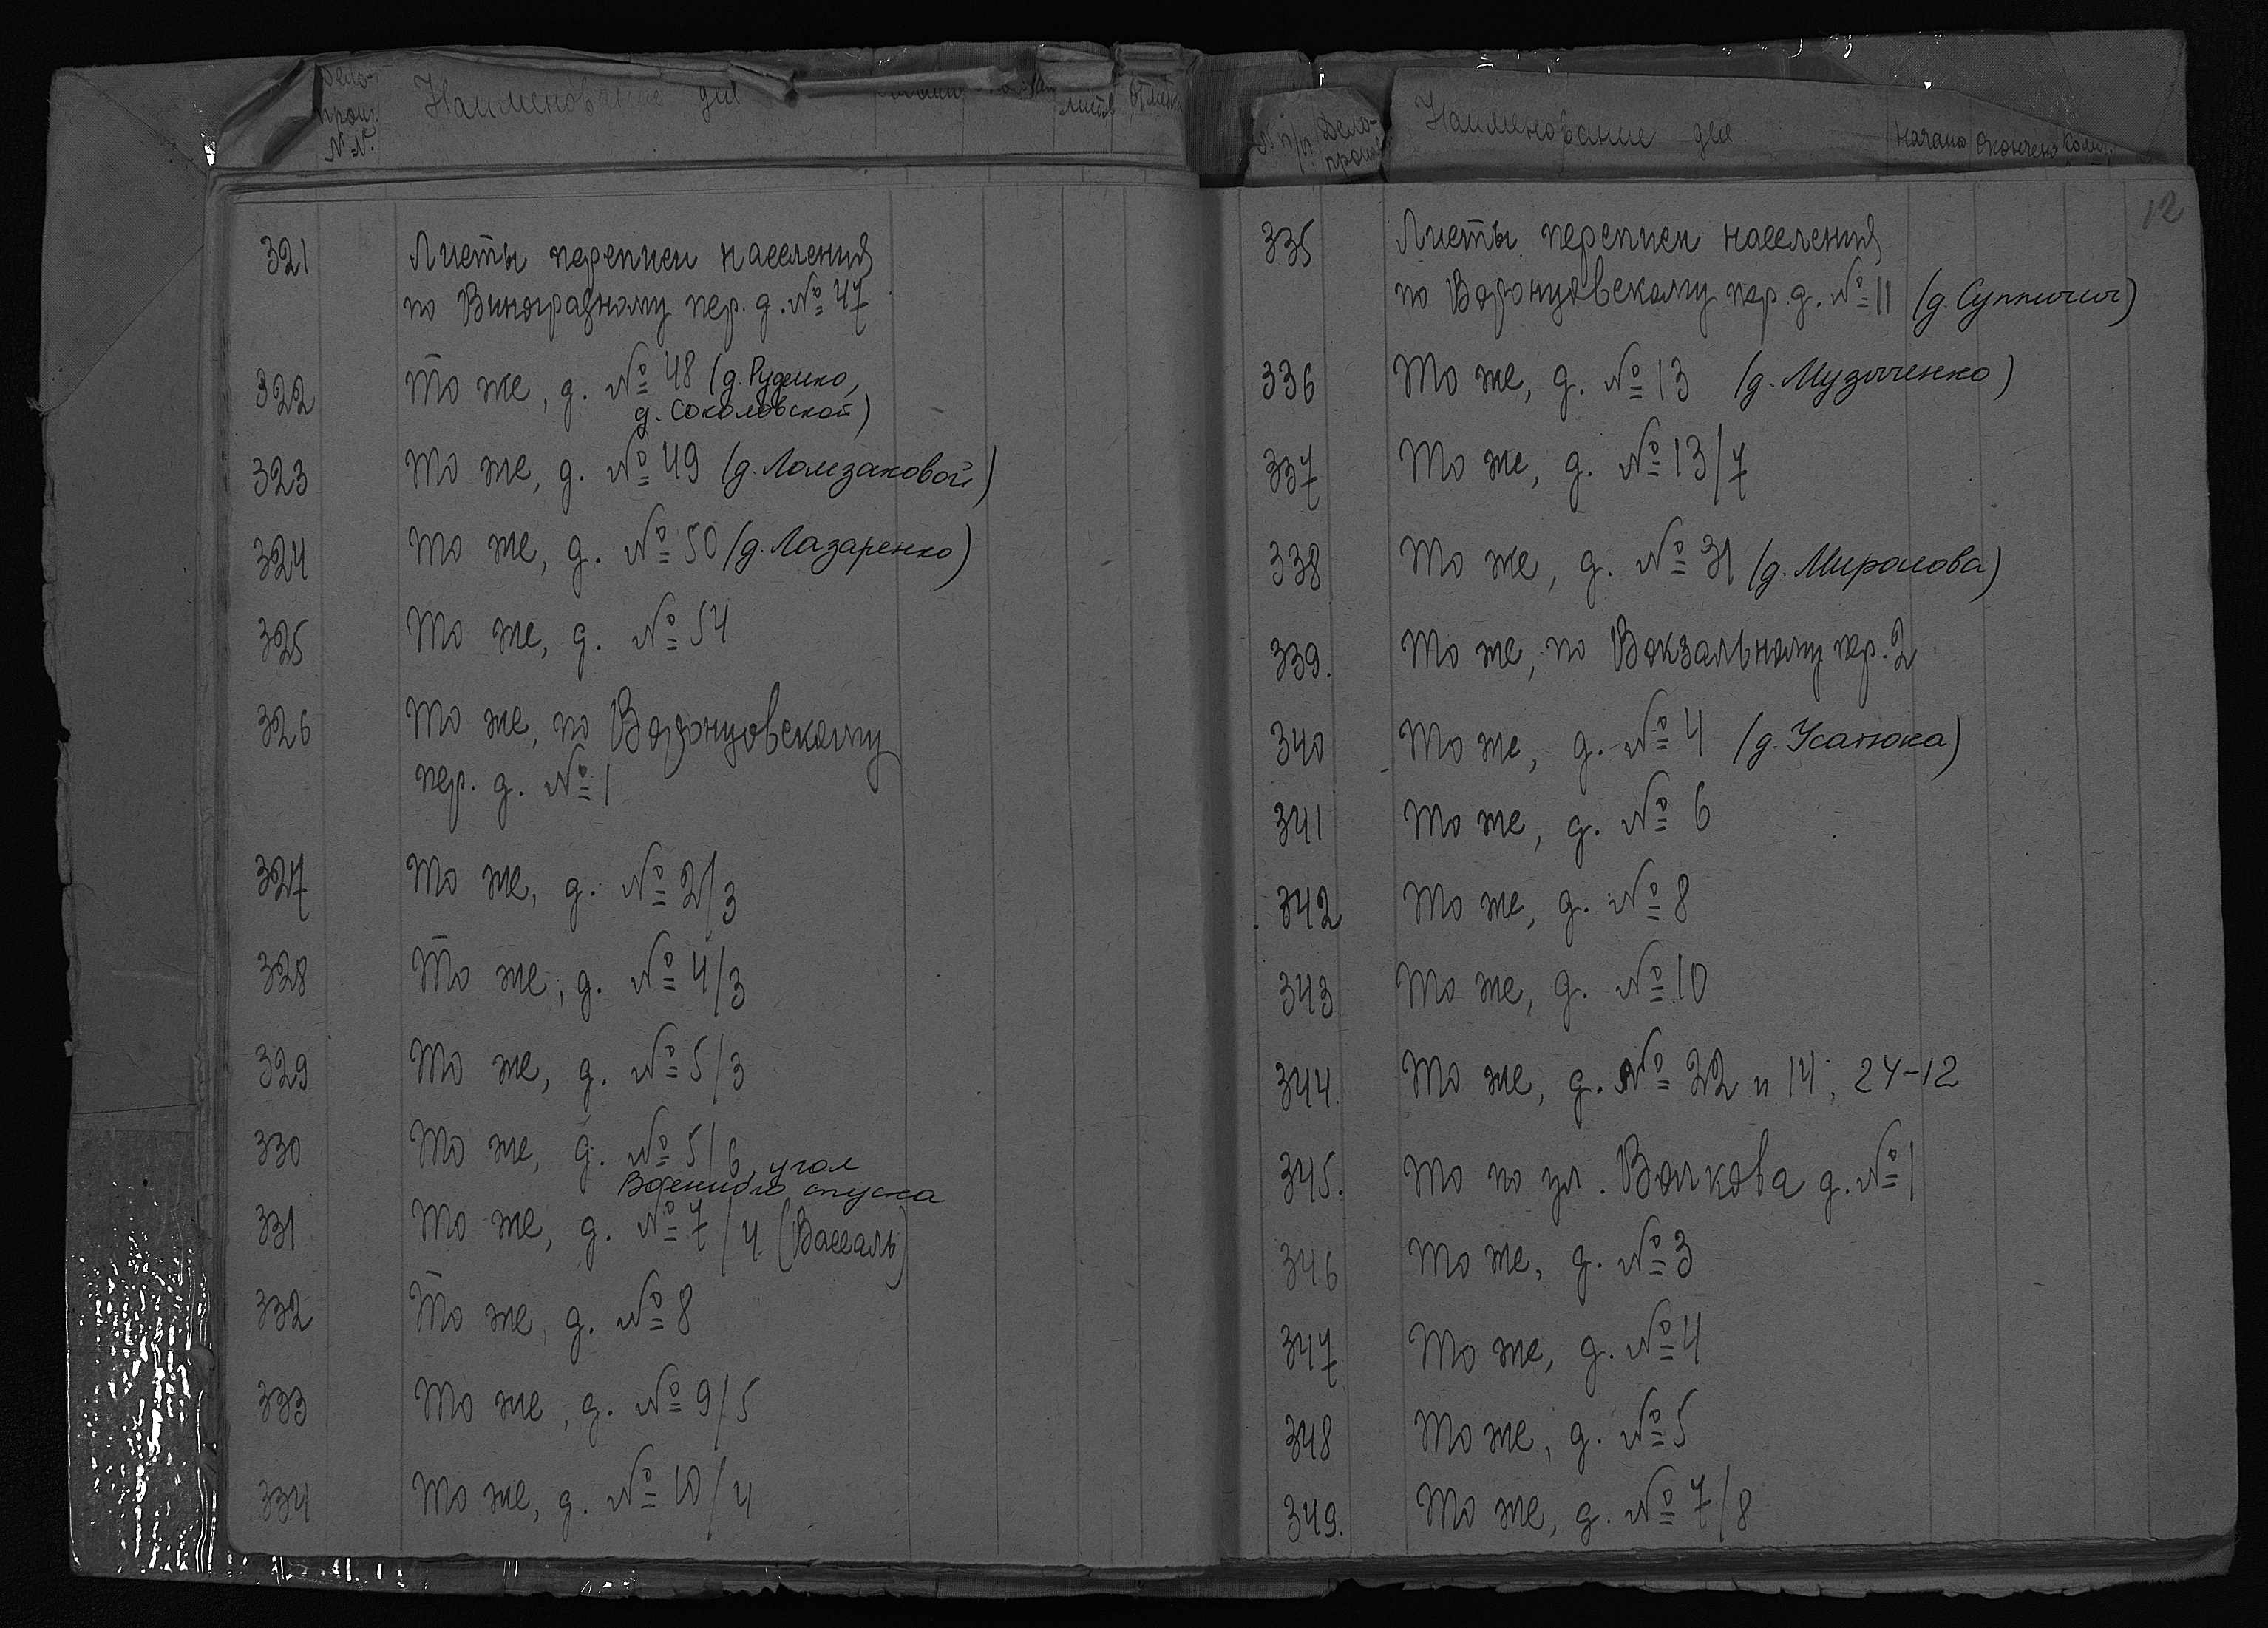 Дело-
произ.
№№.
Наименование дел
листов
Отметки
321 Листы переписи населения
по Виноградному пер. д. № 47
322 То же, д. № 48 (д. Руденко,
д. Соколовской)
323 То же, д. № 49 (д. Ломзаковой)
324 То же, д. № 50 (д. Лазаренко)
325 То же, д. № 54
326 То же, по Воронцовскому
пер. д. № 1
327 То же, д. № 2/3
328 То же, д. № 4/3
329 То же, д. № 5/3
330 То же, д. № 5/6, угол
Военного спуска
331 То же, д. № 7/4 (Вассаль)
332 То же, д. № 8
333 То же, д. № 9/5
334 То же, д. № 10/4
п/п Дело-
произ
Наименование дел.
Начато Окончено Колич.
12
335 Листы переписи населения
по Воронцовскому пер. д. № 11 (д. Суппичич)
336 То же, д. № 13 (д. Музыченко)
337 То же, д. № 13/7
338 То же, д. № 31 (д. Миронова)
339. То же, по Вокзальному пер. 2
340 То же, д. № 4 (д. Усатюка)
341 То же, д. № 6
342 То же, д. № 8
343 То же, д. № 10
344. То же, д. № 22 и 14; 24-12
345. То по ул. Волкова д. № 1
346 То же, д. № 3
347 То же, д. № 4
348 То же, д. № 5
349. То же, д. № 7/8